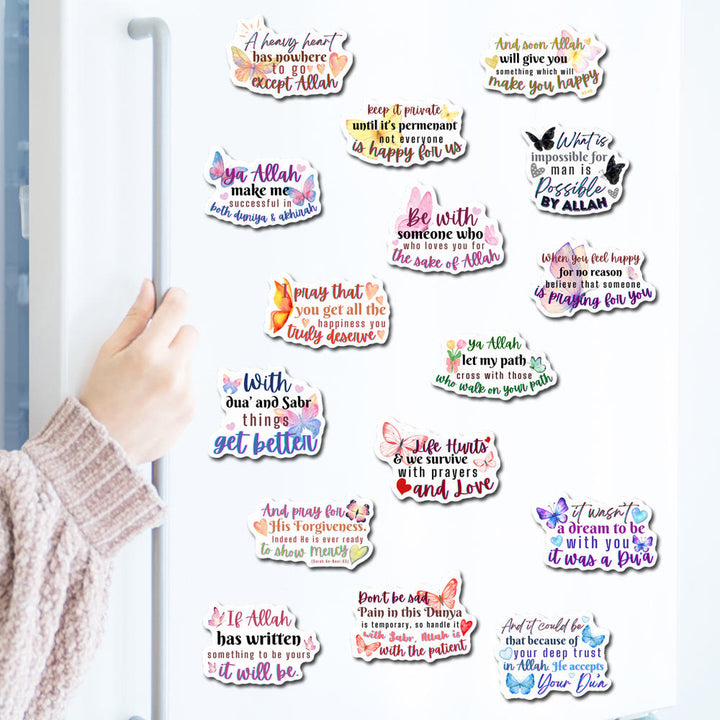 A heavy heart
has nowhere
to go
except Allah
And soon Allah
will give you
something which will
make you happy
keep it private
until it's permenant
not everyone
is happy for us
What is
impossible for
man is
Possible
BY ALLAH
Ya Allah
make me
successful in
both duniya & akhirah
Be with
someone who
who loves you for
the sake of Allah
When you feel happy
for no reason
believe that someone
is praying for you
I pray that
you get all the
happiness you
truly deserve
Ya Allah
let my path
cross with those
who walk on your path
With
dua' and Sabr
things
get better
Life Hurts
& we survive
with prayers
and Love
And pray for
His Forgiveness.
Indeed He is ever ready
to show mercy
it wasn't
a dream to be
with you
it was a Du'a
If Allah
has written
something to be yours
it will be.
Don't be sad
Pain in this Dunya
is temporary, so handle it
with Sabr, Allah is
with the patient
And it could be
that because of
your deep trust
in Allah. He accepts
Your Du'a